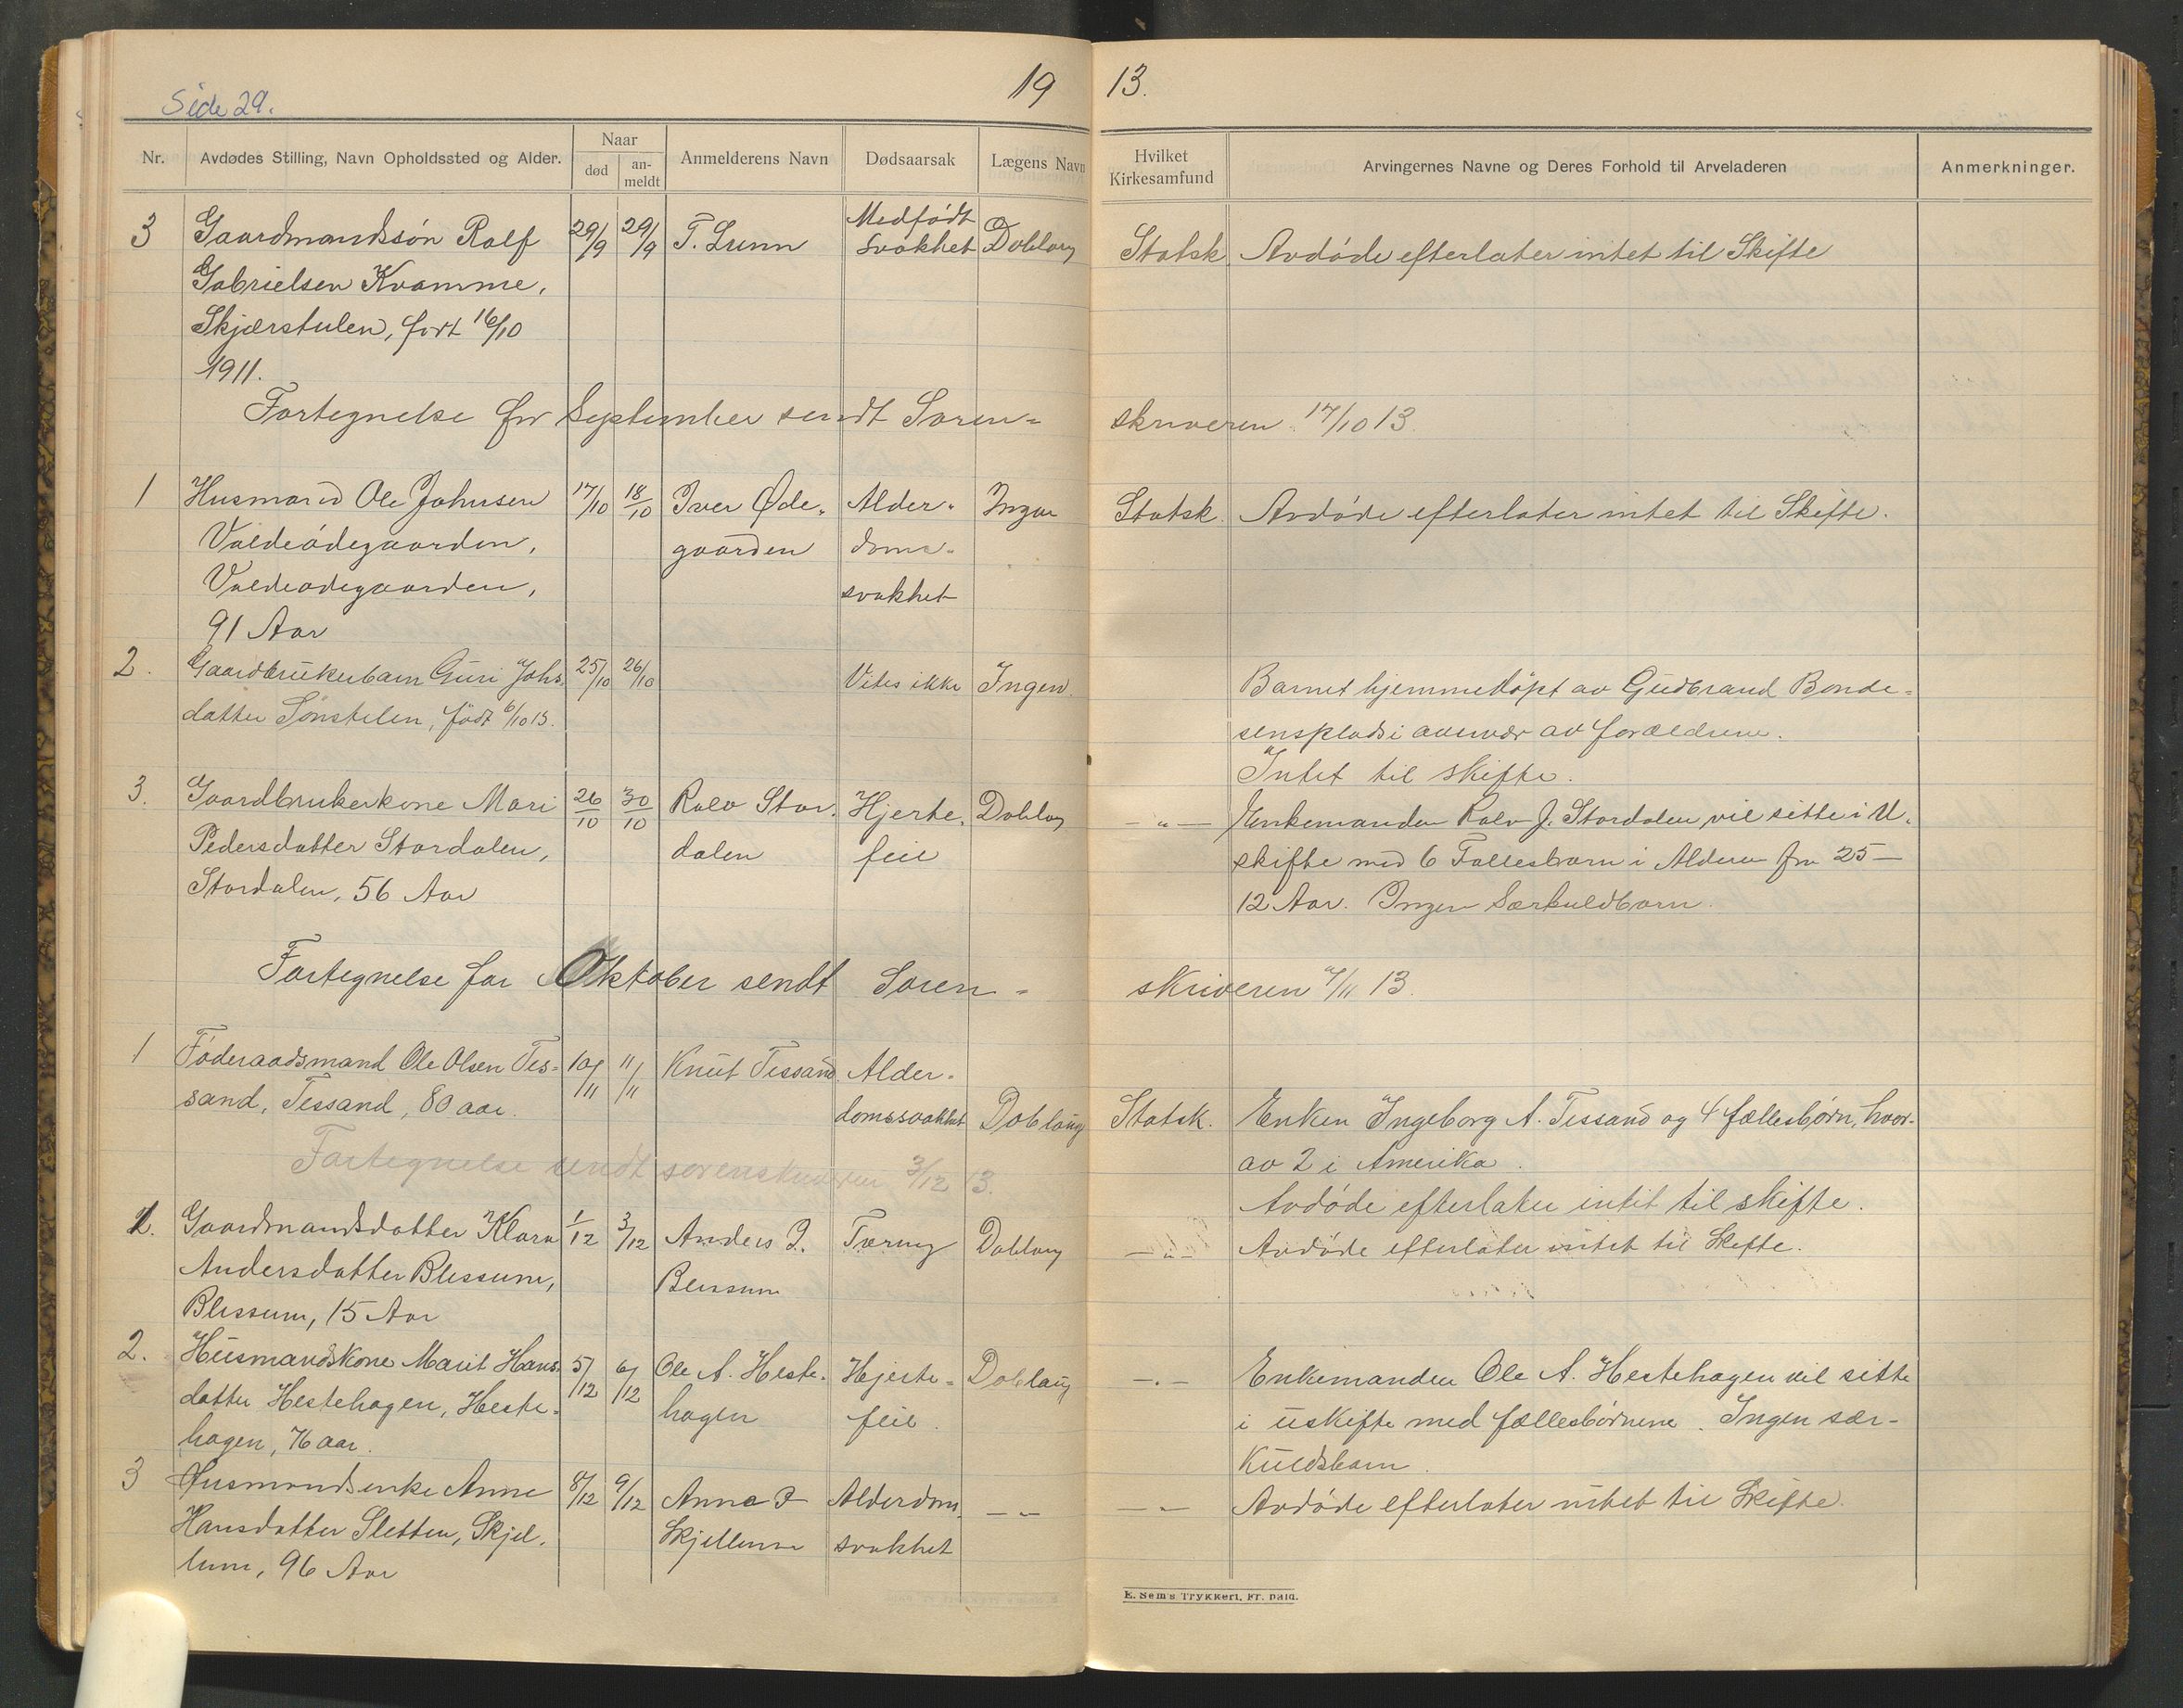 Side 29.
19 13.
Nr.
Avdødes Stilling, Navn Opholdssted og Alder.
Naar
død
an-
meldt
Anmelderens Navn
Dødsaarsak
Lægens Navn
Hvilket
Kirkesamfund
Arvingernes Navne og Deres Forhold til Arveladeren
Anmerkninger.
3 Gaardmandssøn Rolf 29/9 29/9 T. Lunn Medfødt
svakhet Doblaug Statsk. Avdøde efterlater intet til Skifte
Gabrielsen Kvamme,
Skjærstulen, født 16/10
1911.
Fortegnelse for September sendt Soren=
skriveren 17/10 13.
1 Husmand Ole Johnsen 17/10 18/10 Iver Øde- Alder- Ingen Statsk. Avdøde efterlater intet til Skifte.
Valdeødegaarden, gaarden doms-
Valdeødegaarden, svakhet
91 Aar
2. Gaardbrukerbarn Guri Johs. 25/10 26/10 Vites ikke Ingen. Barnet hjemmedøpt av Gudbrand Bonde=
datter Sønstelien, født 6/10 13. sensplads i avervær av forældrene.
Intet til skifte.
3. Gaardbrukerkone Mari 26/10 30/10 Rolv Stor- Hjerte- Doblaug — " — Enkemanden Rolv J. Stordalen vil sitte i U-
Pedersdatter Stordalen, dalen feil skifte med 6 Fællesbarn i Alderen fra 25—
Stordalen, 56 Aar 12 Aar. Ingen Særkuldbarn.
Fortegnelse for Oktober sendt Soren=
skriveren 7/11 13.
1 Føderaadsmand Ole Olsen Tes= 10/11 11/11 Knut Tessand Alder-
sand, Tessand, 80 aar. domssvakhet Doblaug Statsk. Enken Ingeborg A. Tessand og 4 fællesbørn, hvor-
av 2 i Amerika.
Fortegnelse sendt sorenskriveren 3/12 13.
Avdøde efterlater intet til skifte.
1. Gaardmandsdatter Klara 1/12 3/12 Anders J. Tæring Doblaug — " — Avdøde efterlater intet til Skifte.
Andersdatter Blessum, Blessum
Blessum, 15 Aar
2. Husmandskone Marit Hans- 5/12 6/12 Ole A. Heste- Hjerte= Doblaug — " — Enkemanden Ole A. Hestehagen vil sitte
datter Hestehagen, Heste- hagen feil. i uskifte med fællesbørnene. Ingen sær-
hagen, 76 aar. kuldsbarn.
3 Husmandsenke Anne 8/12 9/12 Anna P Alderdoms- — " — — " — Avdøde efterlater intet til Skifte.
Hansdatter Sletten, Skjel- Skjellum svakhet
lum, 96 Aar
E. Sem's Trykkeri, Fr. hald.